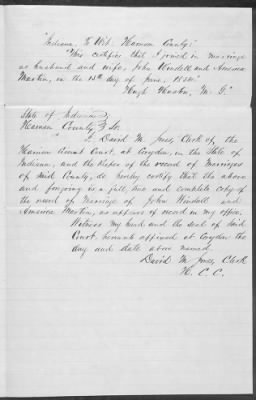 "Indiana, To Wit: Harrison County:"
"This certifies that I joined in marriage
as husband and wife, John Windell and America
Martin, on the 13th day of June, 1830."
Hugh M. G."
State of Indiana }
Harrison County } SS.
I, David M. Jones, Clerk of the
Harrison Circuit Court, at Corydon, in the State of
Indiana, and the Keeper of the record of Marriages
of said County, do hereby certify that the above
and foregoing is a full, true and complete copy of
the record of Marriage of John Windell and
America Martin, as appears of record in my office.
Witness my hand and the seal of said
Court hereunto affixed at Corydon the
day and date above named.
David M Jones, Clerk
H. C. C.